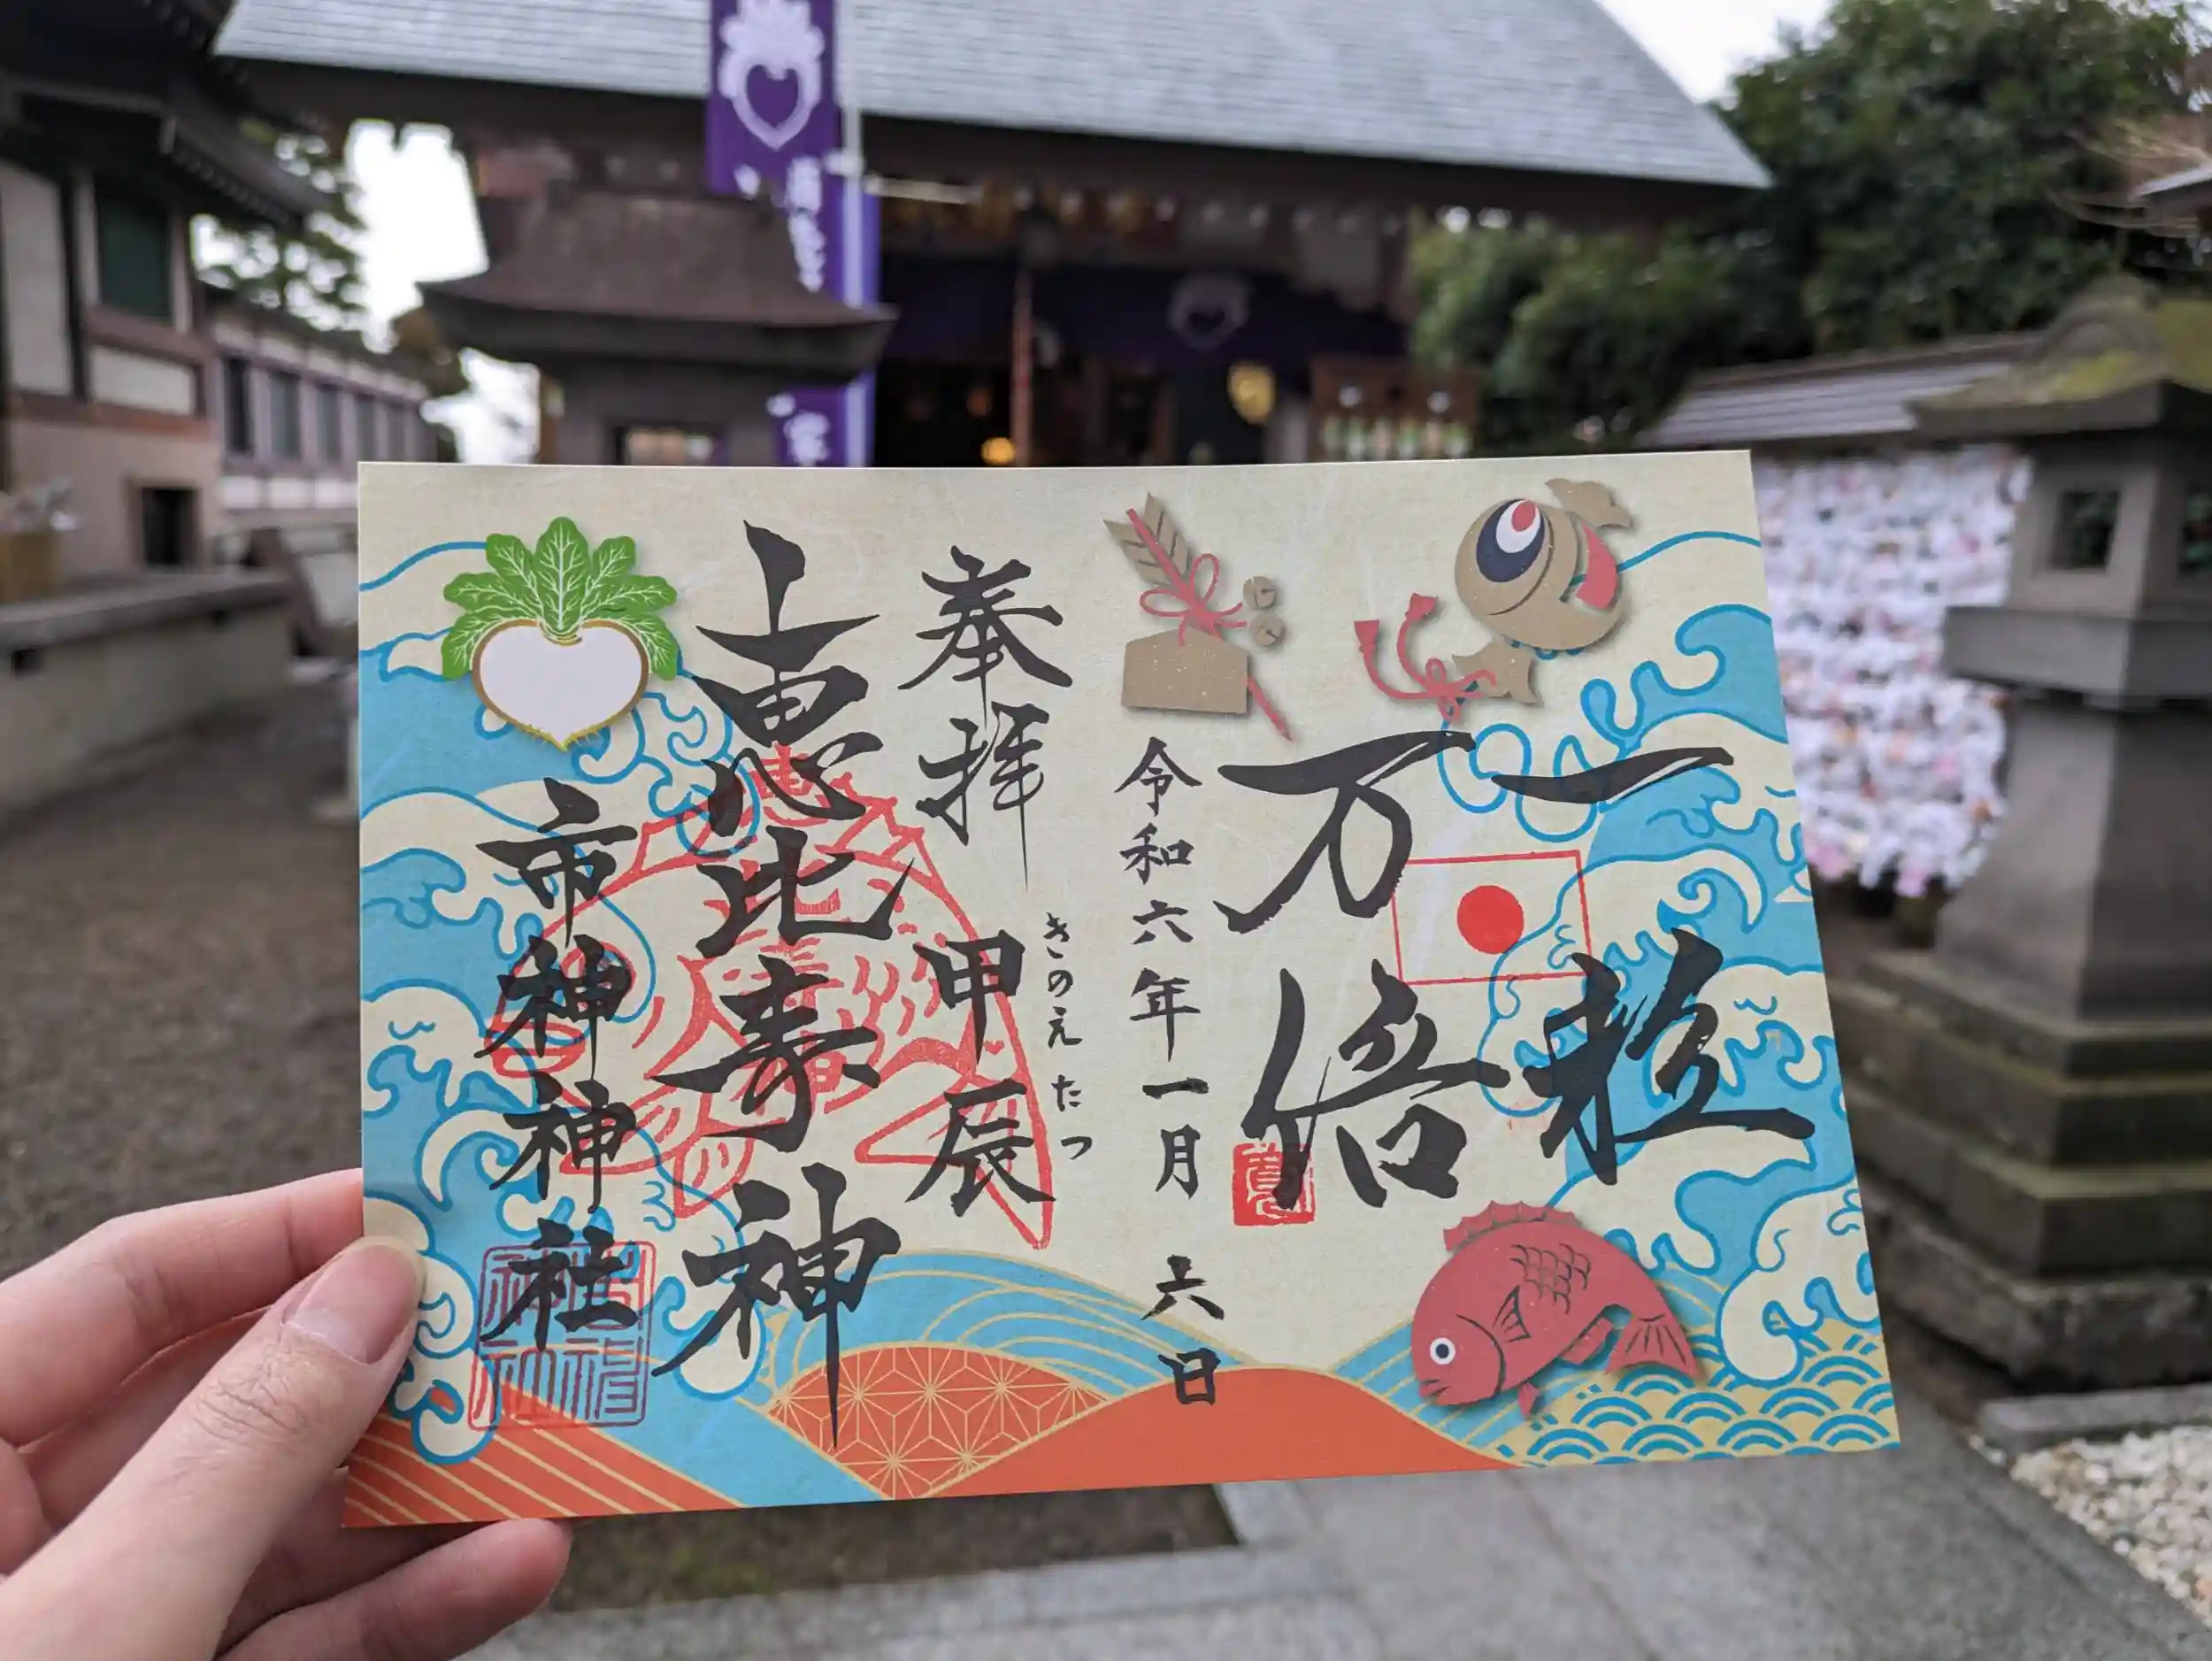 一粒
万倍
令和六年一月 六日
きのえ たつ
奉拝 甲辰
上恵比寿神
市神神社